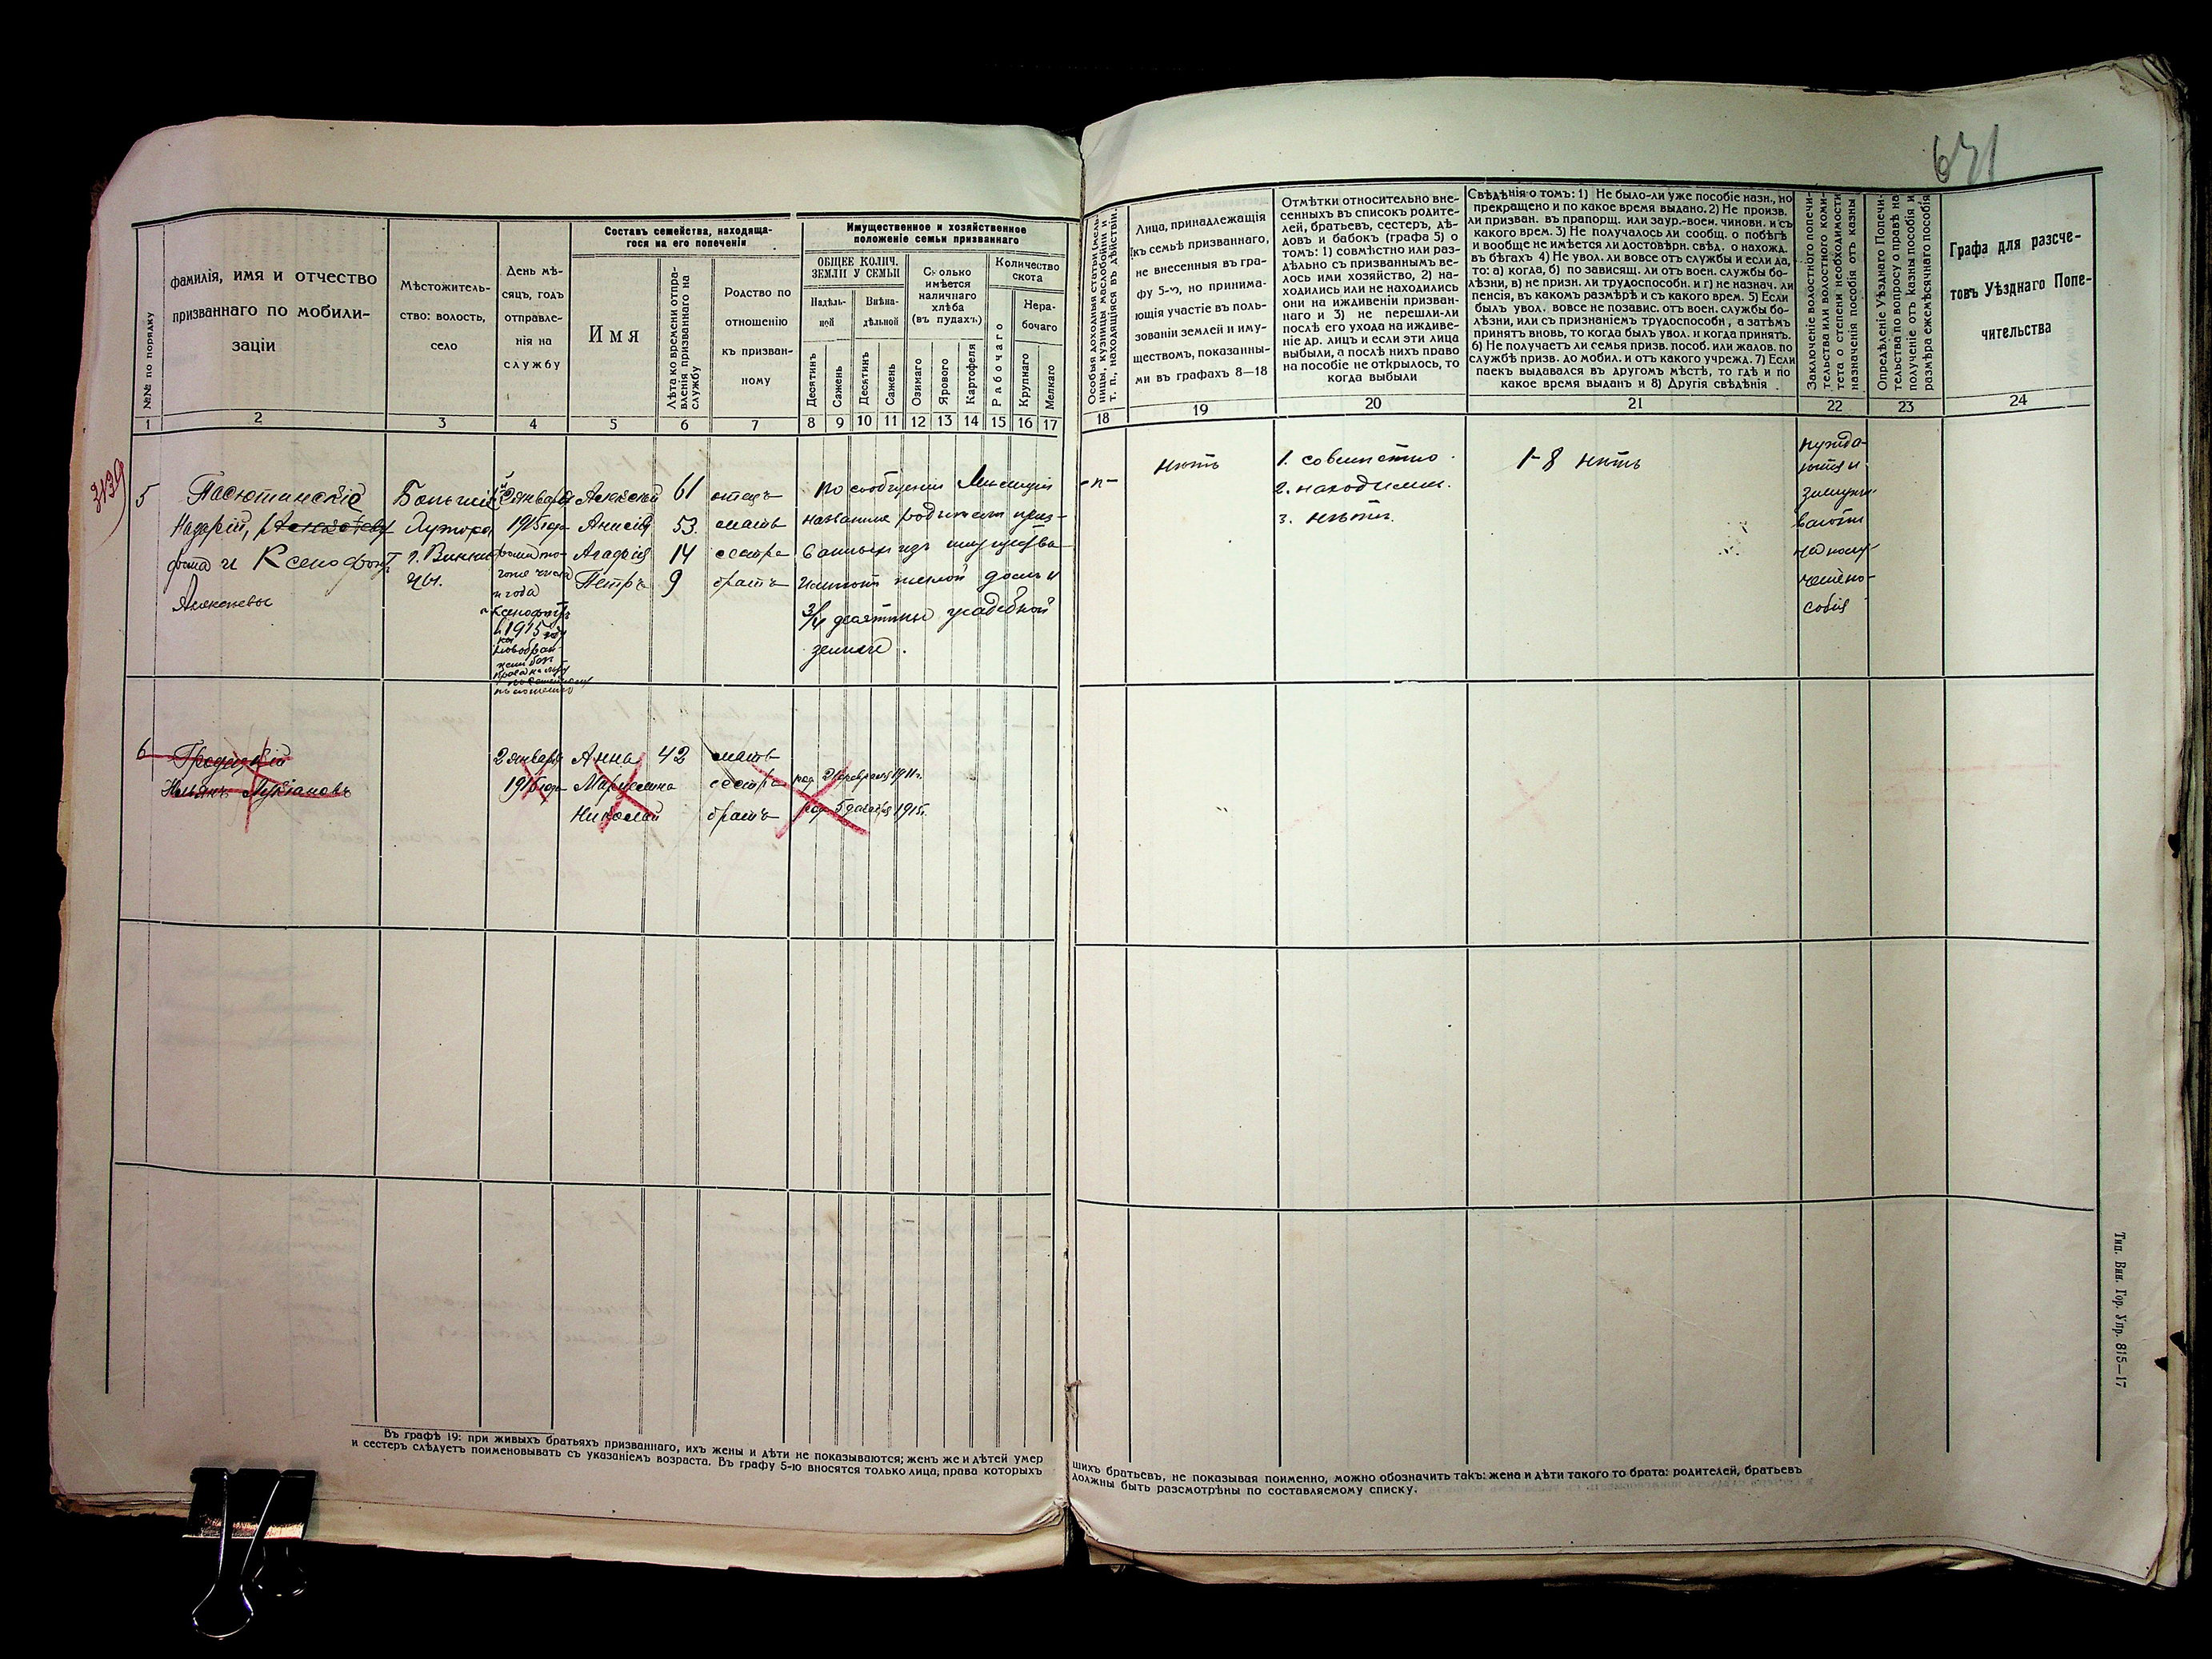 671
№№ по порядку
Фамилія, имя и отчество
призваннаго по мобили-
заціи
Мѣстожитель-
ство: волость,
село
День мѣ-
сяцъ, годъ
отправле-
нія на
службу
Составъ семейства, находяща-
гося на его попеченіи
Имя
Лѣта ко времени отпра-
вленія призваннаго на
службу
Родство по
отношенію
къ призван-
ному
Имущественное и хозяйственное
положеніе семьи призваннаго
ОБЩЕЕ КОЛИЧ.
ЗЕМЛИ У СЕМЬИ
Надѣль-
ной
Внѣна-
дѣльной
Десятинъ
Сажень
Десятинъ
Сажень
Сколько
имѣется
наличнаго
хлѣба
(въ пудахъ)
Озимаго
Ярового
Картофеля
Количество
скота
Рабочаго
Нера-
бочаго
Крупнаго
Мелкаго
1 2 3 4 5 6 7 8 9 10 11 12 13 14 15 16 17
Особыя доходныя статьи (мель-
ницы, кузницы маслобойни и
т. п., находящіяся въ дѣйствіи.
Лица, принадлежащія
къ семьѣ призваннаго,
не внесенныя въ гра-
фу 5-ю, но принима-
ющія участіе въ поль-
зованіи землей и иму-
ществомъ, показанны-
ми въ графахъ 8—18
Отмѣтки относительно вне-
сенныхъ въ списокъ родите-
лей, братьевъ, сестеръ, дѣ-
довъ и бабокъ (графа 5) о
томъ: 1) совмѣстно или раз-
дѣльно съ призваннымъ ве-
лось ими хозяйство, 2) на-
ходились или не находились
они на иждивеніи призван-
наго и 3) не перешли-ли
послѣ его ухода на иждиве-
ніе др. лицъ и если эти лица
выбыли, а послѣ нихъ право
на пособіе не открылось, то
когда выбыли
Свѣдѣнія о томъ: 1) Не было-ли уже пособіе назн., но
прекращено и по какое время выдано. 2) Не произв.
ли призван. въ прапорщ. или заур.-воен. чиновн. и съ
какого врем. 3) Не получалось ли сообщ. о побѣгѣ
и вообще не имѣется ли достовѣрн. свѣд. о нахожд.
въ бѣгахъ 4) Не увол. ли вовсе отъ службы и если да,
то: а) когда, б) по зависящ. ли отъ воен. службы бо-
лѣзни, в) не призн. ли трудоспособн. и г) не назнач. ли
пенсія, въ какомъ размѣрѣ и съ какого врем. 5) Если
былъ увол. вовсе не позавис. отъ воен. службы бо-
лѣзни, или съ признаніемъ трудоспособн, а затѣмъ
принятъ вновь, то когда былъ увол. и когда принятъ.
6) Не получаетъ ли семья призв. пособ. или жалов. по
службѣ призв. до мобил. и отъ какого учрежд. 7) Если
паекъ выдавался въ другомъ мѣстѣ, то гдѣ и по
какое время выданъ и 8) Другія свѣдѣнія
Заключеніе волостного попечи-
тельства или волостного коми-
тета о степени необходимости
назначенія пособія отъ казны
Опредѣленіе Уѣзднаго Попечи-
тельства по вопросу о правѣ на
полученіе отъ казны пособія и
размѣра ежемѣсячнаго пособія
Графа для разсче-
товъ Уѣзднаго Попе-
чительства
18 19 20 21 22 23 24
3139
5
Пасютинскіе
Назарій,
фома и Ксенофонт
Алексѣевы
Большіе
Хутора
г. Винни
цы.
января
1915 года
того числа
и года
Ксенофонтъ
въ 1915 году
Алексѣй 61 отецъ
Анисія 53. мать
Агафія 14 сестра
Петръ 9 братъ
По сообщенію
названные родители приз-
ванныхъ изъ имущества
имѣютъ жилой домъ и
3/4 десятины усадебной
земли.
-п-
нѣтъ
1. совмѣстно.
2. находились.
3. нѣтъ.
1-8 нѣтъ
нужда-
ются и
заслужи-
ваютъ
на полу-
ченіе по-
собія
6
Гродецкій
Лукіановъ
2 января
1915 года
Анна 42 мать
сестра род. 2 февраля 1911 г.
Николай братъ род. 5 декабря 1915 г.
Въ графѣ 19: при живыхъ братьяхъ призваннаго, ихъ жены и дѣти не показываются; женъ же и дѣтей умер
и сестеръ слѣдуетъ поименовывать съ указаніемъ возраста. Въ графу 5-ю вносятся только лица, права которыхъ
шихъ братьевъ, не показывая поименно, можно обозначить такъ: жена и дѣти такого то брата: родителей, братьевъ
должны быть разсмотрѣны по составляемому списку.
Тип. Вин. Гор. Упр. 815—17